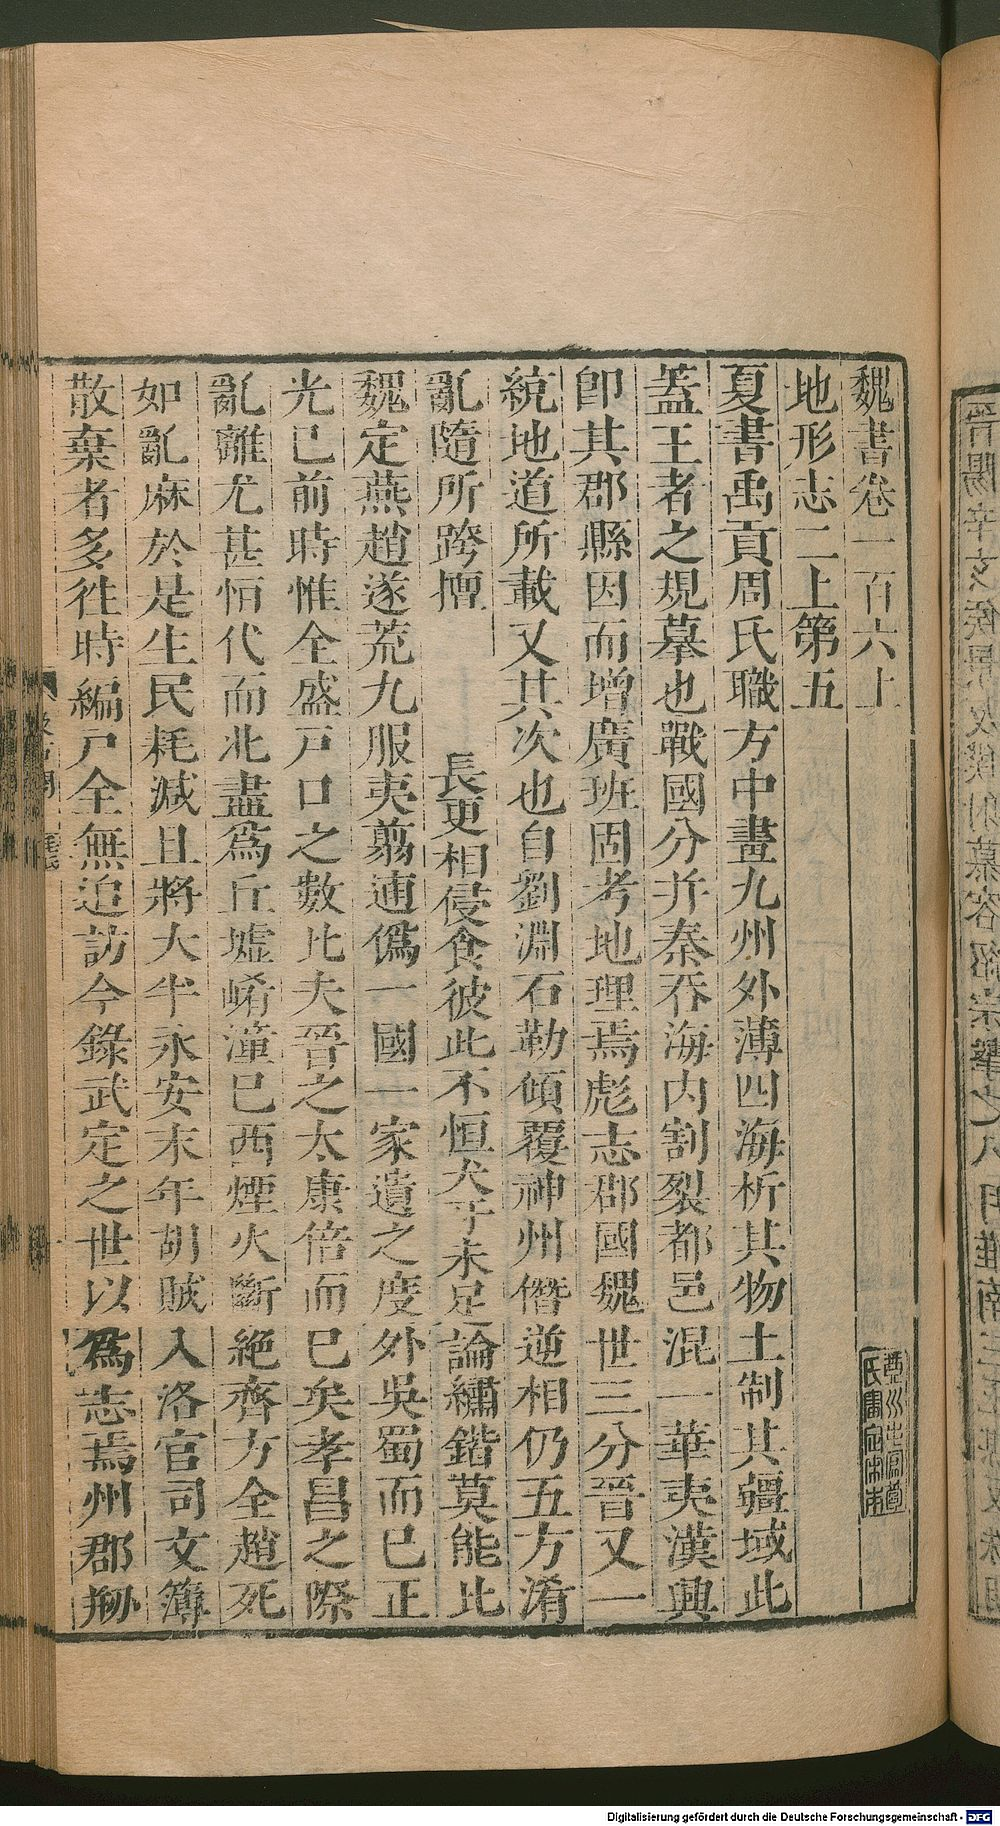 魏書卷一百六上
地形志二上第五
夏書禹貢周氏職方中畫九州外薄四海析其物土制其疆域此
蓋王者之規摹也戰國分并秦吞海內割裂都邑混一華夷漢興
卽其郡縣因而增廣班固考地理焉彪志郡國魏世三分晉又一
統地道所載又其次也自劉淵石勒傾覆神州僭逆相仍五方淆
亂隨所跨擅長更相侵食彼此不恒犬牙未足論繡錯莫能比
魏定燕趙遂荒九服夷翦逋僞一國一家遺之度外吳蜀而已正
光已前時惟全盛戸口之數比夫晉之太康倍而已矣孝昌之際
亂離尤甚恒代而北盡爲丘墟崤潼已西煙火斷絶齊方全趙死
如亂麻於是生民耗減且將大半永安末年胡賊入洛官司文簿
散棄者多徃時編戸全無追訪今錄武定之世以爲志焉州郡剏
Digitalisierung gefördert durch die Deutsche Forschungsgemeinschaft - DFG